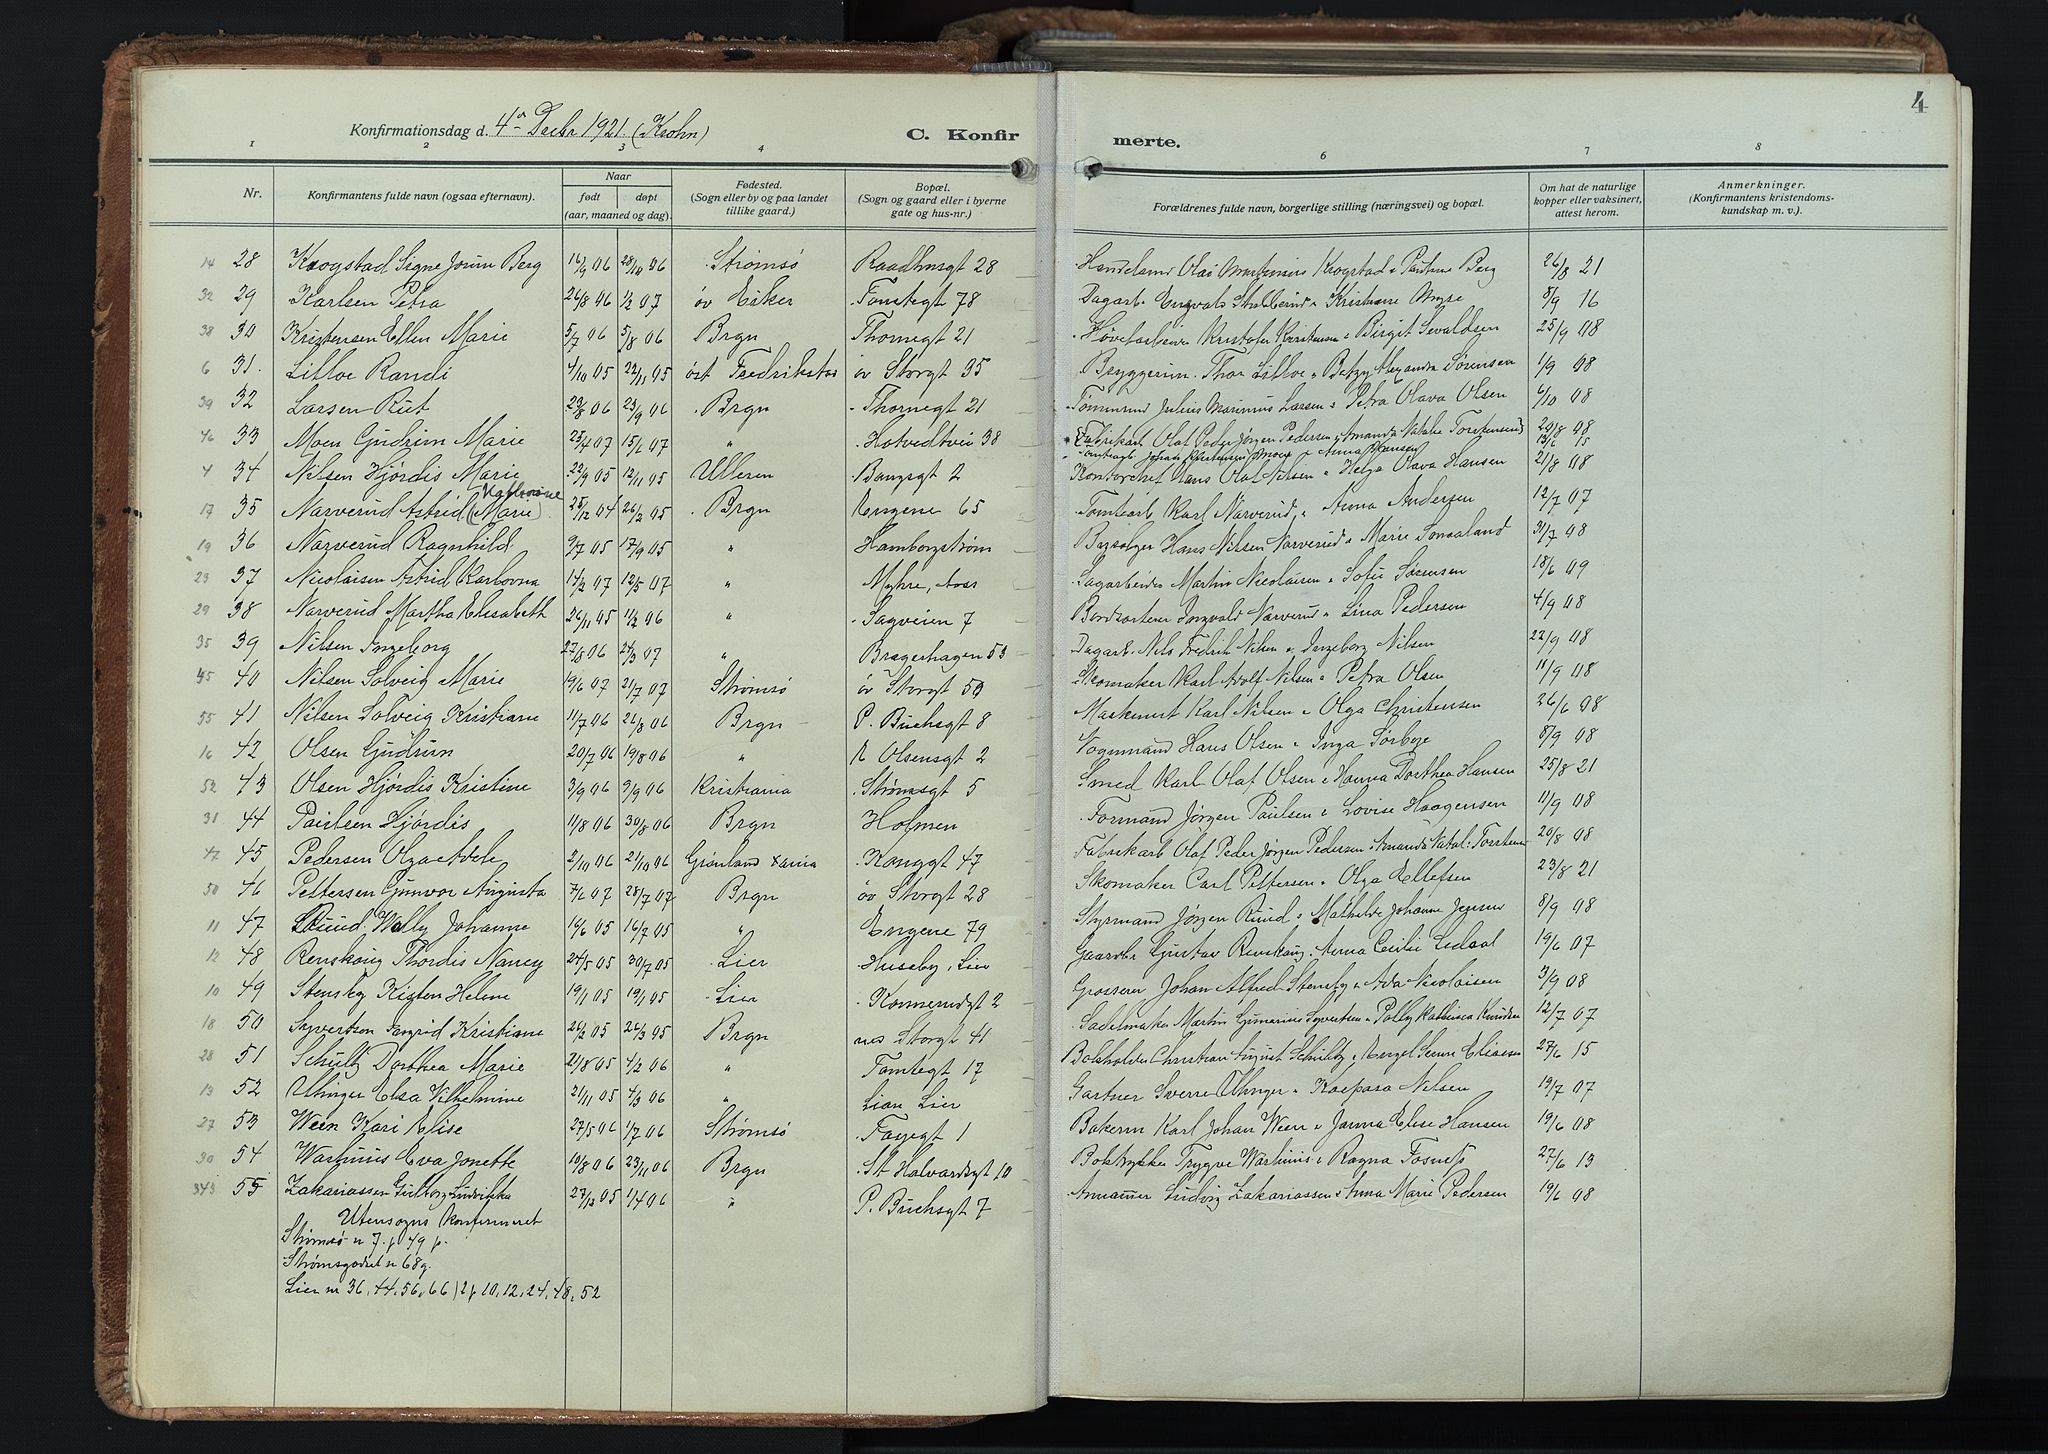 4
Konfirmationsdag d. 4de Decbr 1921. (Krohn)
C. Konfir
merte.
1 2 3 4 6 7 8
Nr. Konfirmantens fulde navn (ogsaa efternavn). Naar født døpt (aar, maaned og dag). Fødested. (Sogn eller by og paa landet tillike gaard.) Bopæl. (Sogn og gaard eller i byerne gate og hus-nr.) Forældrenes fulde navn, borgerlige stilling (næringsvei) og bopæl. Om hat de naturlige kopper eller vaksinert, attest herom. Anmerkninger. (Konfirmantens kristendomskundskap m. v.).
14 28 Krogstad Signe Jorun Berg 16/9 06 28/10 06 Strømsø Raadhusgt 28 Handelsmd Olai Martinius Krogstad Pauline Berg 26/8 21
32 29 Karlsen Petra 26/8 06 1/2 07 øv Eiker Tomtegt 78 Dagarb. Engvald Stubberud Kristiane Myre 8/9 16
38 30 Kristensen Ellen Marie 5/7 06 5/8 06 Brgn Thornegt 21 Høvlarbeider Kristofer Kristensen Birgit Sevaldsen 25/9 08
6 31. Lilloe Randi 4/10 05 22/11 05 øst Fredrikstad øv Storgt 35 Bryggerim. Thor Lilloe Betzy Alexandra Sørensen 1/9 08
39 32 Larsen Rut 23/8 06 23/9 06 Brgn Thornegt 21 Tømmermd Julius Marinius Larsen Petra Olava Olsen 6/10 08
46 33 Moen Gudrun Marie 25/4 07 15/6 07 " Hotvedtvei 38 Fabrikarb. Olaf Peder Jørgen Pedersen Amanda Natalie Torstensen 20/8 08
Johan Kristensen Moen Anna Hansen 13/6 15
4 34 Nilsen Hjørdis Marie 22/9 05 12/11 05 Ulleren Bangsgt 2 Kontorchef Hans Olaf Nilsen Helga Olava Hansen 21/8 08
17 35 Narverud Astrid (Marie) Kathrine 25/12 04 26/2 05 Brgn Engene 65 Tomtearb Karl Narverud Anna Andersen 12/7 07
19 36 Narverud Ragnhild 9/7 05 17/9 05 " Hamborgstrøm Hans Nilsen Narverud Marie Sonsaland 31/7 08
23 37 Nicolaisen Astrid Karlovna 14/2 07 12/5 07 " Myhre, Aass Sagarbeider Martin Nicolaisen Sofie Sørensen 18/6 09
29 38 Narverud Martha Elisabeth 26/11 05 11/2 06 " Sagveien 7 Bordsorterer Ingvald Narverud Lina Pedersen 4/9 08
35 39 Nilsen Ingeborg 27/8 06 24/3 07 " Bragerhagen 53 Dagarb. Nils Fredrik Nilsen Ingeborg Nilsen 22/9 08
45 40 Nilsen Solveig Marie 19/6 07 21/7 07 Strømsø øv Storgt 50 Skomaker Karl Adolf Nilsen Petra Olsen 11/9 08
55 41 Nilsen Solveig Kristiane 11/7 06 26/8 06 Brgn P. Buchsgt 8 Maskinist Karl Nilsen Olga Christensen 26/6 08
16 42 Olsen Gudrun 20/7 06 19/8 06 " A Olsensgt 2 Vognmand Hans Olsen Inga Sørbye 8/9 08
52 43 Olsen Hjørdis Kristine 3/9 06 9/9 06 Kristiania Strømsgt 5 Smed Karl Olaf Olsen Hanna Dorthea Hansen 25/8 21
31 44 Paulsen Hjørdis 11/8 06 30/8 06 Brgn Holmen Formand Jørgen Paulsen Lovise Haagensen 11/9 08
47 45 Pedersen Olga Adele 2/10 06 21/10 06 Grønland Xania Konggt 47 Fabrikarb Olaf Peder Jørgen Pedersen Amanda Natal. Torstensen 20/8 08
50 46 Pettersen Gunvor Augusta 7/6 07 28/7 07 Brgn øv Storgt 28 Skomaker Carl Pettersen Olga Ellefsen 23/8 21
11 47 Ruud Wally Johanne 16/6 05 16/7 05 " Engene 79 Styrmand Jørgen Ruud Mathilde Johanne Jensen 8/9 08
12 48 Renskoug Thordis Nancy 24/5 05 30/7 05 Lier Huseby, Lier Gaardbr Gustav Renskoug Anna Cecilie Ledaal 19/6 07
10 49 Stensby Kisten Helene 19/1 05 19/1 05 Lier Konnerudgt 2 Grosserer Johan Alfred Stensby Ada Nicolaisen 3/9 08
18 50 Syvertsen Ingrid Kristiane 26/2 05 26/3 05 Brgn nes Storgt 41 Sadelmaker Martin Gunarius Syvertsen Polly Kathinca Knudsen 12/7 07
28 51 Schultz Dorthea Marie 21/8 05 4/2 06 " Tomtegt 17 Bokholder Christian August Schultz Engel Semine Eliassen 27/6 15
13 52 Ullinger Elsa Vilhelmine 21/11 05 4/3 06 " Lian Lier Gartner Sverre Ullinger Kaspara Nilsen 19/7 07
27 53 Ween Kari Elise 27/5 06 1/7 06 Strømsø Fayegt 1 Bakerm Karl Johan Ween Janna Elise Hansen 19/6 08
30 54 Warhuus Eva Jonette 19/8 06 23/11 06 Brgn St Halvardsgt 10 Boktrykker Trygve Warhuus Ragna Fosnes 27/6 13
343 55 Zakariassen Gudborg Ludvikka 27/12 05 1/4 06 " P. Buchsgt 7 Ludvig Zakariassen Anna Marie Pedersen 19/6 08
Utensogns konfirmeret
Strømsø n 7. p 49 p.
Strømsgodset n 68g.
Lier nr 36, 44, 56, 66) 2p 10, 12, 24, 48, 52